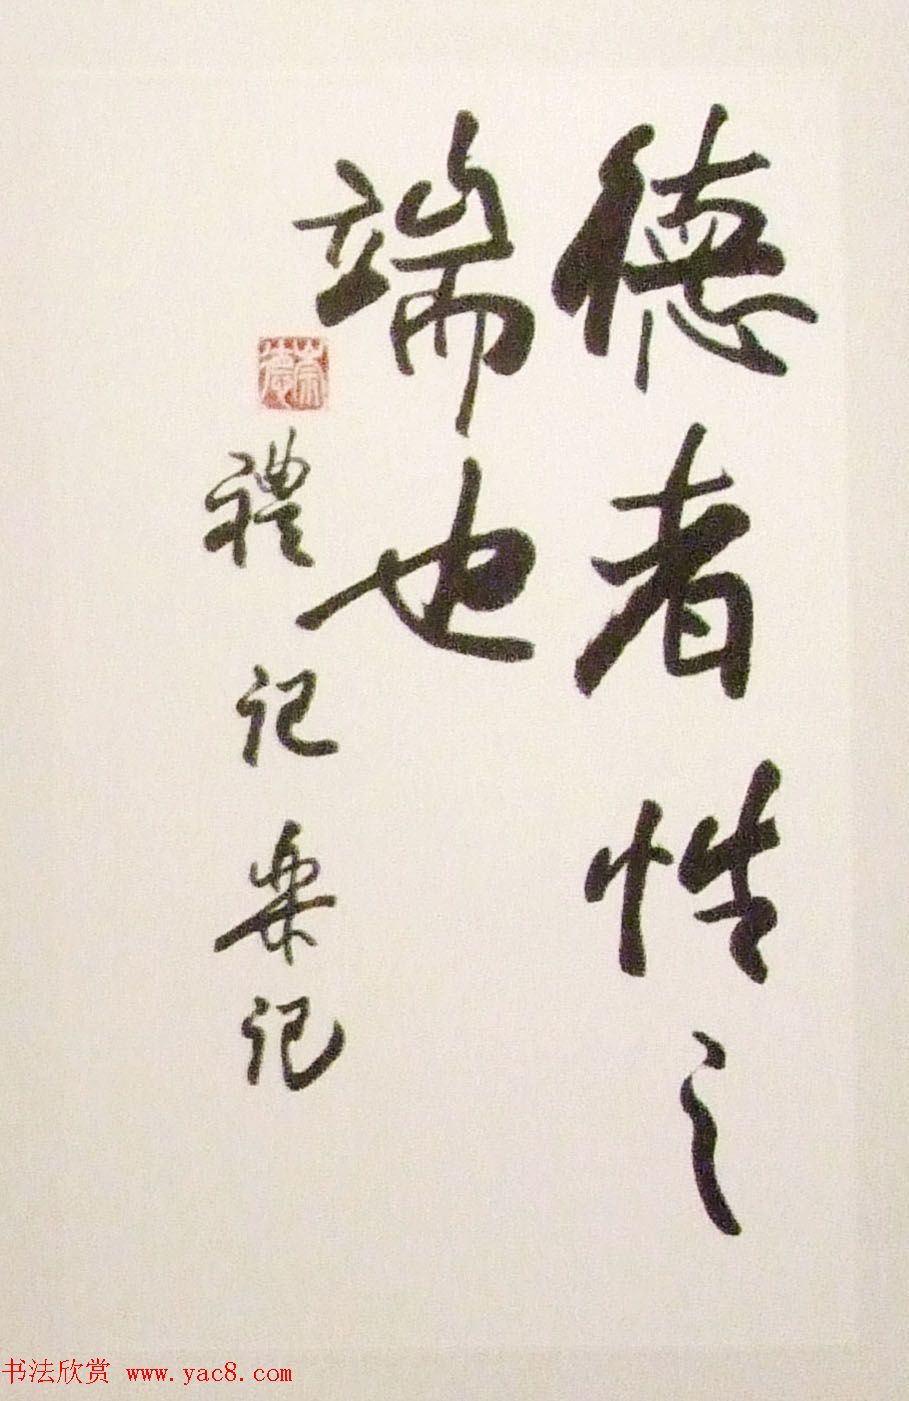 德者性之
端也
禮记樂记
崇德
书法欣赏 www.yac8.com